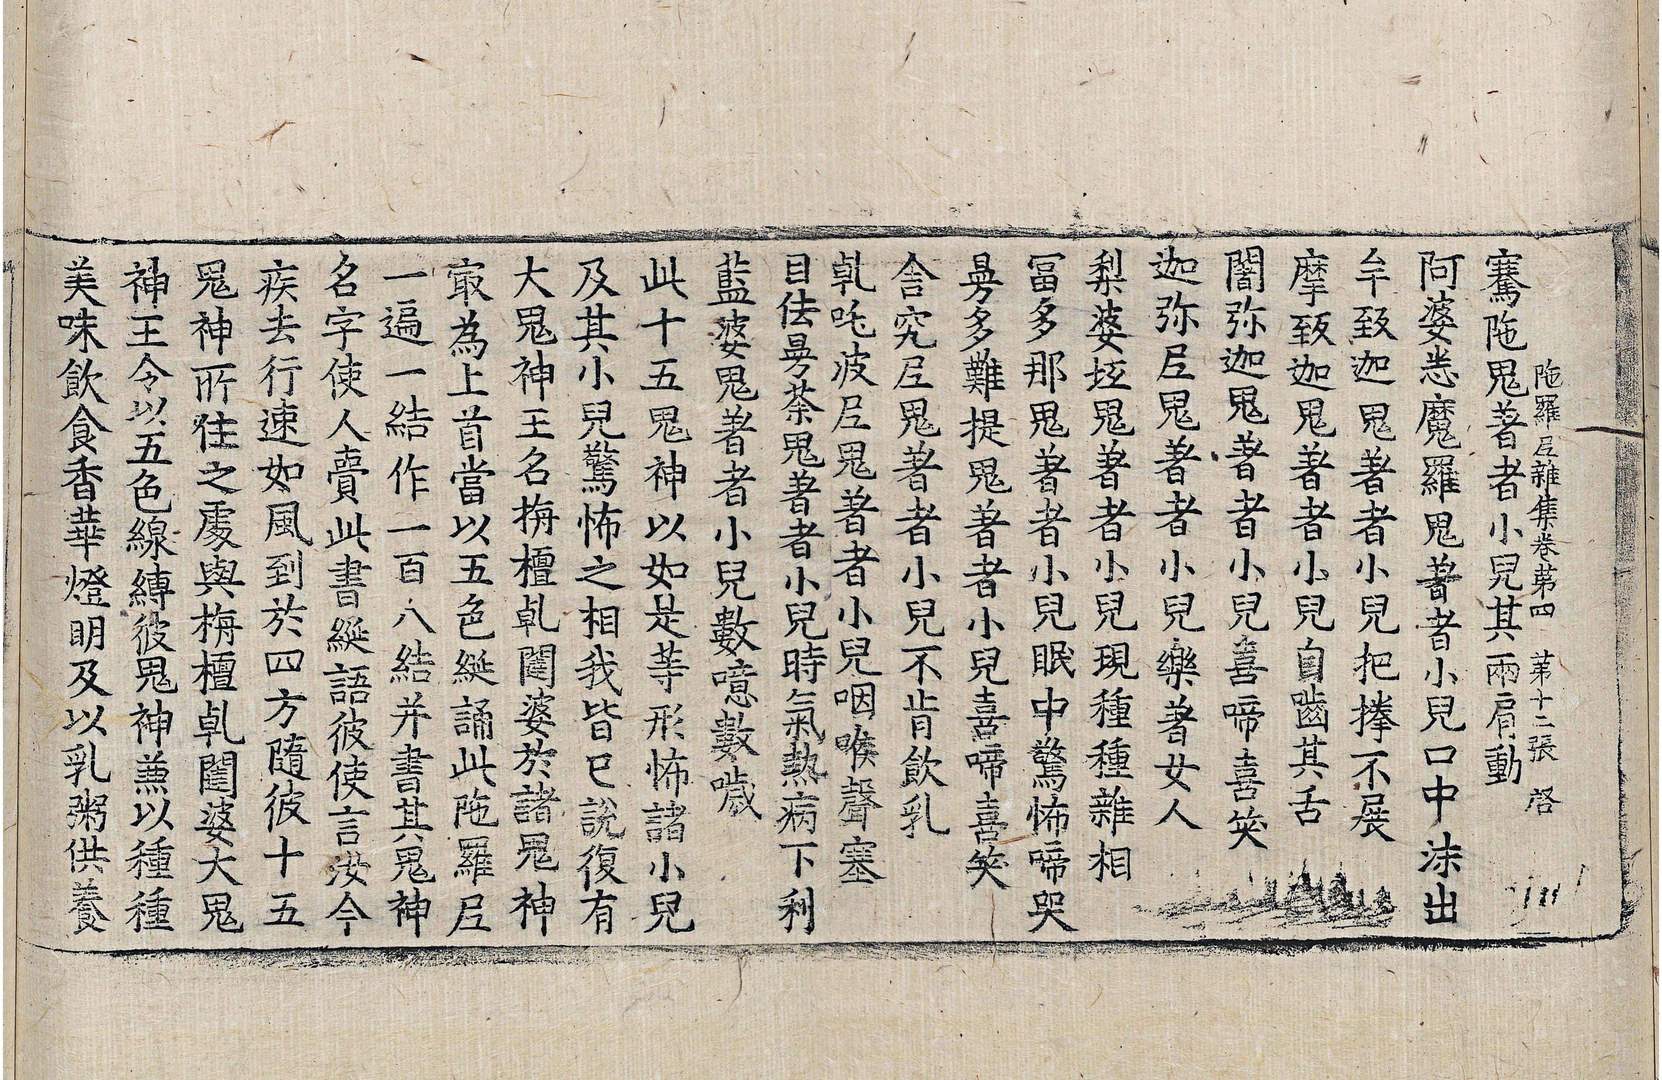 陁羅尼雜集卷第四 第十二張 啓
騫陁鬼著者小兒其兩肩動
阿婆悉魔羅鬼著者小兒口中沫出
牟致迦鬼著者小兒把拳不展
摩致迦鬼著者小兒自齧其舌
閻弥迦鬼著者小兒喜啼喜笑
迦弥尼鬼著者小兒樂著女人
梨婆坻鬼著者小兒現種種雜相
冨多那鬼著者小兒眠中驚怖啼哭
曼多難提鬼著者小兒喜啼喜笑
舍究尼鬼著者小兒不肯飲乳
乹吒波尼鬼著者小兒咽喉聲塞
目佉曼荼鬼著者小兒時氣熱病下利
藍婆鬼著者小兒數噫數噦
此十五鬼神以如是等形怖諸小兒
及其小兒驚怖之相我皆已說復有
大鬼神王名栴檀乹闥婆於諸鬼神
㝡為上首當以五色綖誦此陁羅尼
一遍一結作一百八結并書其鬼神
名字使人賷此書綖語彼使言汝今
疾去行速如風到於四方隨彼十五
鬼神所住之處與栴檀乹闥婆大鬼
神王令以五色線縛彼鬼神兼以種種
美味飲食香華燈明及以乳粥供養